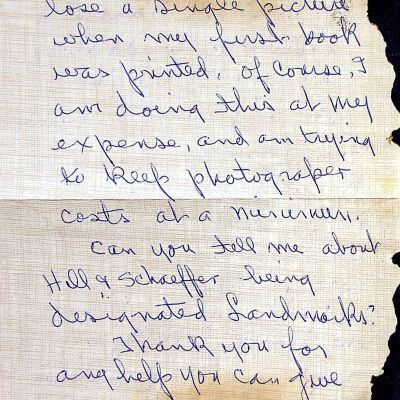 lose a single picture
when my first book
was printed. Of course, I
am doing this at my
expense, and am trying
to keep photograper
costs at a minimum.
Can you tell me about
Hill & Schaeffer being
designated Landmarks?
Thank you for
any help you can give